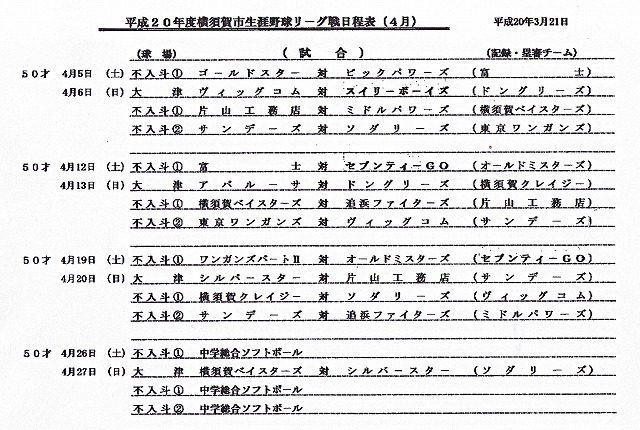 平成２０年度横須賀市生涯野球リーグ戦日程表（４月） 平成20年3月21日
（球 場） （ 試 合 ） （記録・塁審チーム）
５０才 4月5日 （土） 不入斗① ゴールドスター 対 ビックパワーズ （富 士）
4月6日 （日） 大 津 ヴィッグコム 対 スイリーボーイズ （ドングリーズ）
不入斗① 片山工務店 対 ミドルパワーズ （横須賀ベイスターズ）
不入斗② サンデーズ 対 ソダリーズ （東京ワンガンズ）
５０才 4月12日 （土） 不入斗① 富 士 対 セブンティーGO （オールドミスターズ）
4月13日 （日） 大 津 アパルーサ 対 ドングリーズ （横須賀クレイジー）
不入斗① 横須賀ベイスターズ 対 追浜ファイターズ （片山工務店）
不入斗② 東京ワンガンズ 対 ヴィッグコム （サンデーズ）
５０才 4月19日 （土） 不入斗① ワンガンズパートⅡ 対 オールドミスターズ （セブンティーGO）
4月20日 （日） 大 津 シルバースター 対 片山工務店 （サンデーズ）
不入斗① 横須賀クレイジー 対 ソダリーズ （ヴィッグコム）
不入斗② サンデーズ 対 追浜ファイターズ （ミドルパワーズ）
５０才 4月26日 （土） 不入斗① 中学総合ソフトボール
4月27日 （日） 大 津 横須賀ベイスターズ 対 シルバースター （ソダリーズ）
不入斗① 中学総合ソフトボール
不入斗② 中学総合ソフトボール